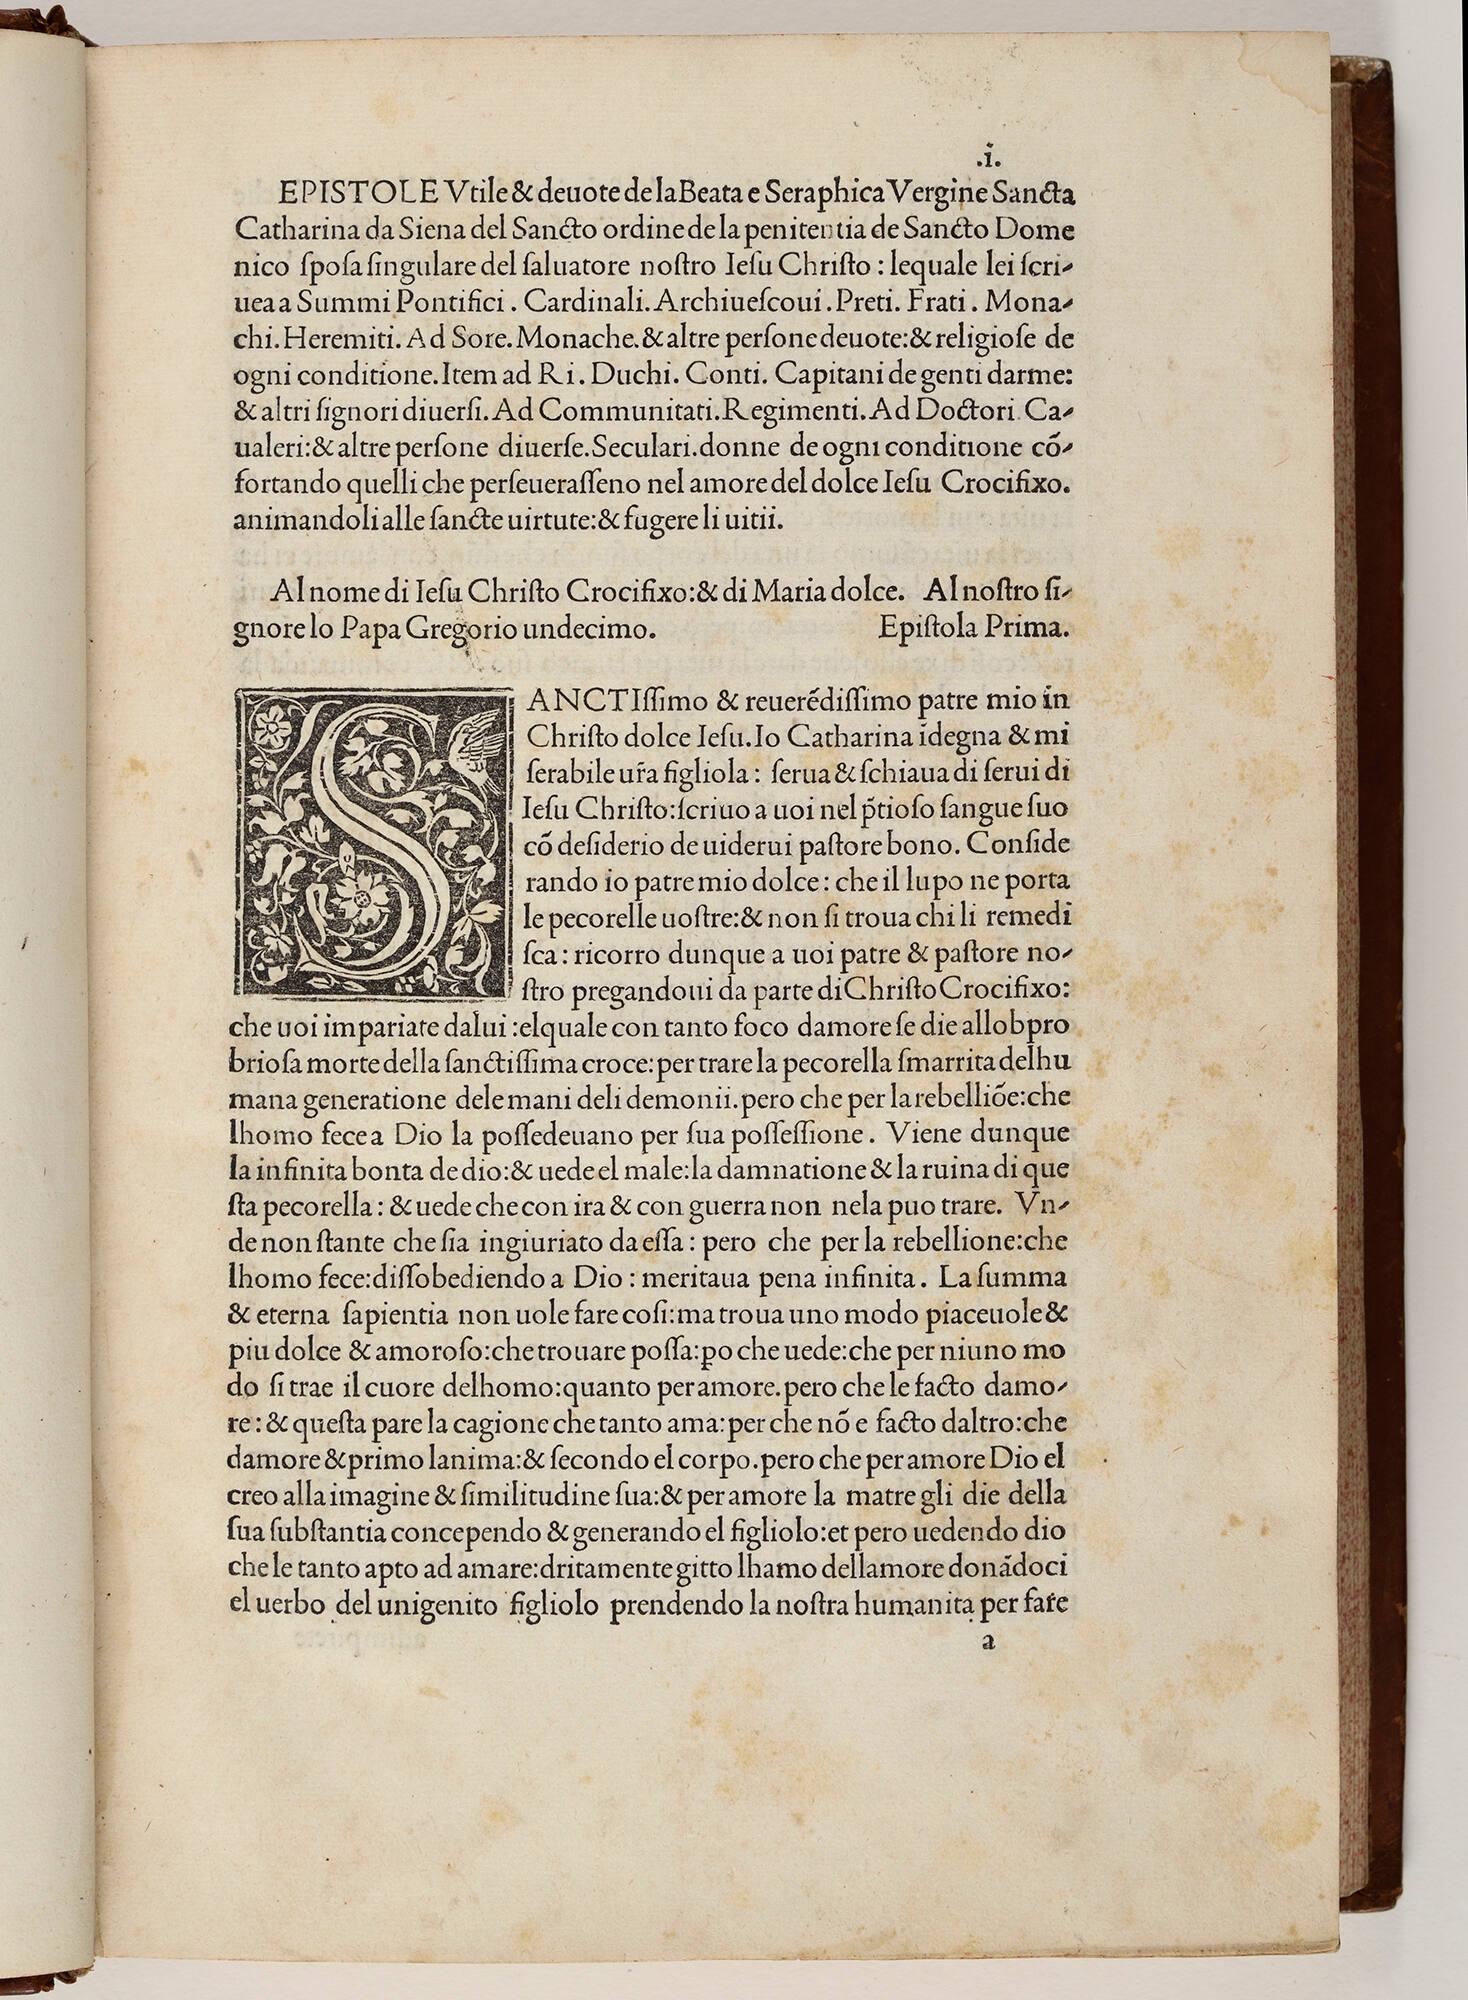 .i.
EPISTOLE Vtile & deuote de la Beata e Seraphica Vergine Sancta
Catharina da Siena del Sancto ordine de la penitentia de Sancto Dome
nico ſpoſa ſingulare del ſaluatore noſtro Ieſu Chriſto : lequale lei ſcri-
uea a Summi Pontifici . Cardinali. Archiueſcoui . Preti. Frati . Mona-
chi. Heremiti. Ad Sore. Monache. & altre perſone deuote: & religioſe de
ogni conditione. Item ad Ri . Duchi. Conti. Capitani de genti darme:
& altri ſignori diuerſi. Ad Communitati. Regimenti. Ad Doctori Ca-
ualeri: & altre perſone diuerſe. Seculari. donne de ogni conditione cõ-
fortando quelli che perſeueraſſeno nel amore del dolce Ieſu Crocifixo.
animandoli alle ſancte uirtute: & fugere li uitii.
Al nome di Ieſu Chriſto Crocifixo: & di Maria dolce. Al noſtro ſi-
gnore lo Papa Gregorio undecimo. Epiſtola Prima.
SANCTIſſimo & reuerẽdiſſimo patre mio in
Chriſto dolce Ieſu. Io Catharina ĩdegna & mi
ſerabile ur̃a figliola : ſerua & ſchiaua di ſerui di
Ieſu Chriſto: ſcriuo a uoi nel p̃tioſo ſangue ſuo
cõ deſiderio de uiderui paſtore bono. Conſide
rando io patre mio dolce : che il lupo ne porta
le pecorelle uoſtre: & non ſi troua chi li remedi
ſca : ricorro dunque a uoi patre & paſtore no-
ſtro pregandoui da parte di Chriſto Crocifixo:
che uoi impariate da lui : elquale con tanto foco damore ſe die allobpro
brioſa morte della ſanctiſſima croce: per trare la pecorella ſmarrita delhu
mana generatione dele mani deli demonii. pero che per la rebelliõe: che
lhomo fece a Dio la poſſedeuano per ſua poſſeſſione . Viene dunque
la infinita bonta de dio: & uede el male: la damnatione & la ruina di que
ſta pecorella : & uede che con ira & con guerra non nela puo trare. Vn-
de non ſtante che ſia ingiuriato da eſſa : pero che per la rebellione: che
lhomo fece: diſſobediendo a Dio : meritaua pena infinita . La ſumma
& eterna ſapientia non uole fare coſi: ma troua uno modo piaceuole &
piu dolce & amoroſo: che trouare poſſa: po che uede: che per niuno mo
do ſi trae il cuore delhomo: quanto per amore. pero che le facto damo-
re : & queſta pare la cagione che tanto ama: per che nõ e facto daltro: che
damore & primo lanima: & ſecondo el corpo. pero che per amore Dio el
creo alla imagine & ſimilitudine ſua: & per amore la matre gli die della
ſua ſubſtantia concependo & generando el figliolo: et pero uedendo dio
che le tanto apto ad amare: dritamente gitto lhamo dellamore donãdoci
el uerbo del unigenito figliolo prendendo la noſtra humanita per fare
a